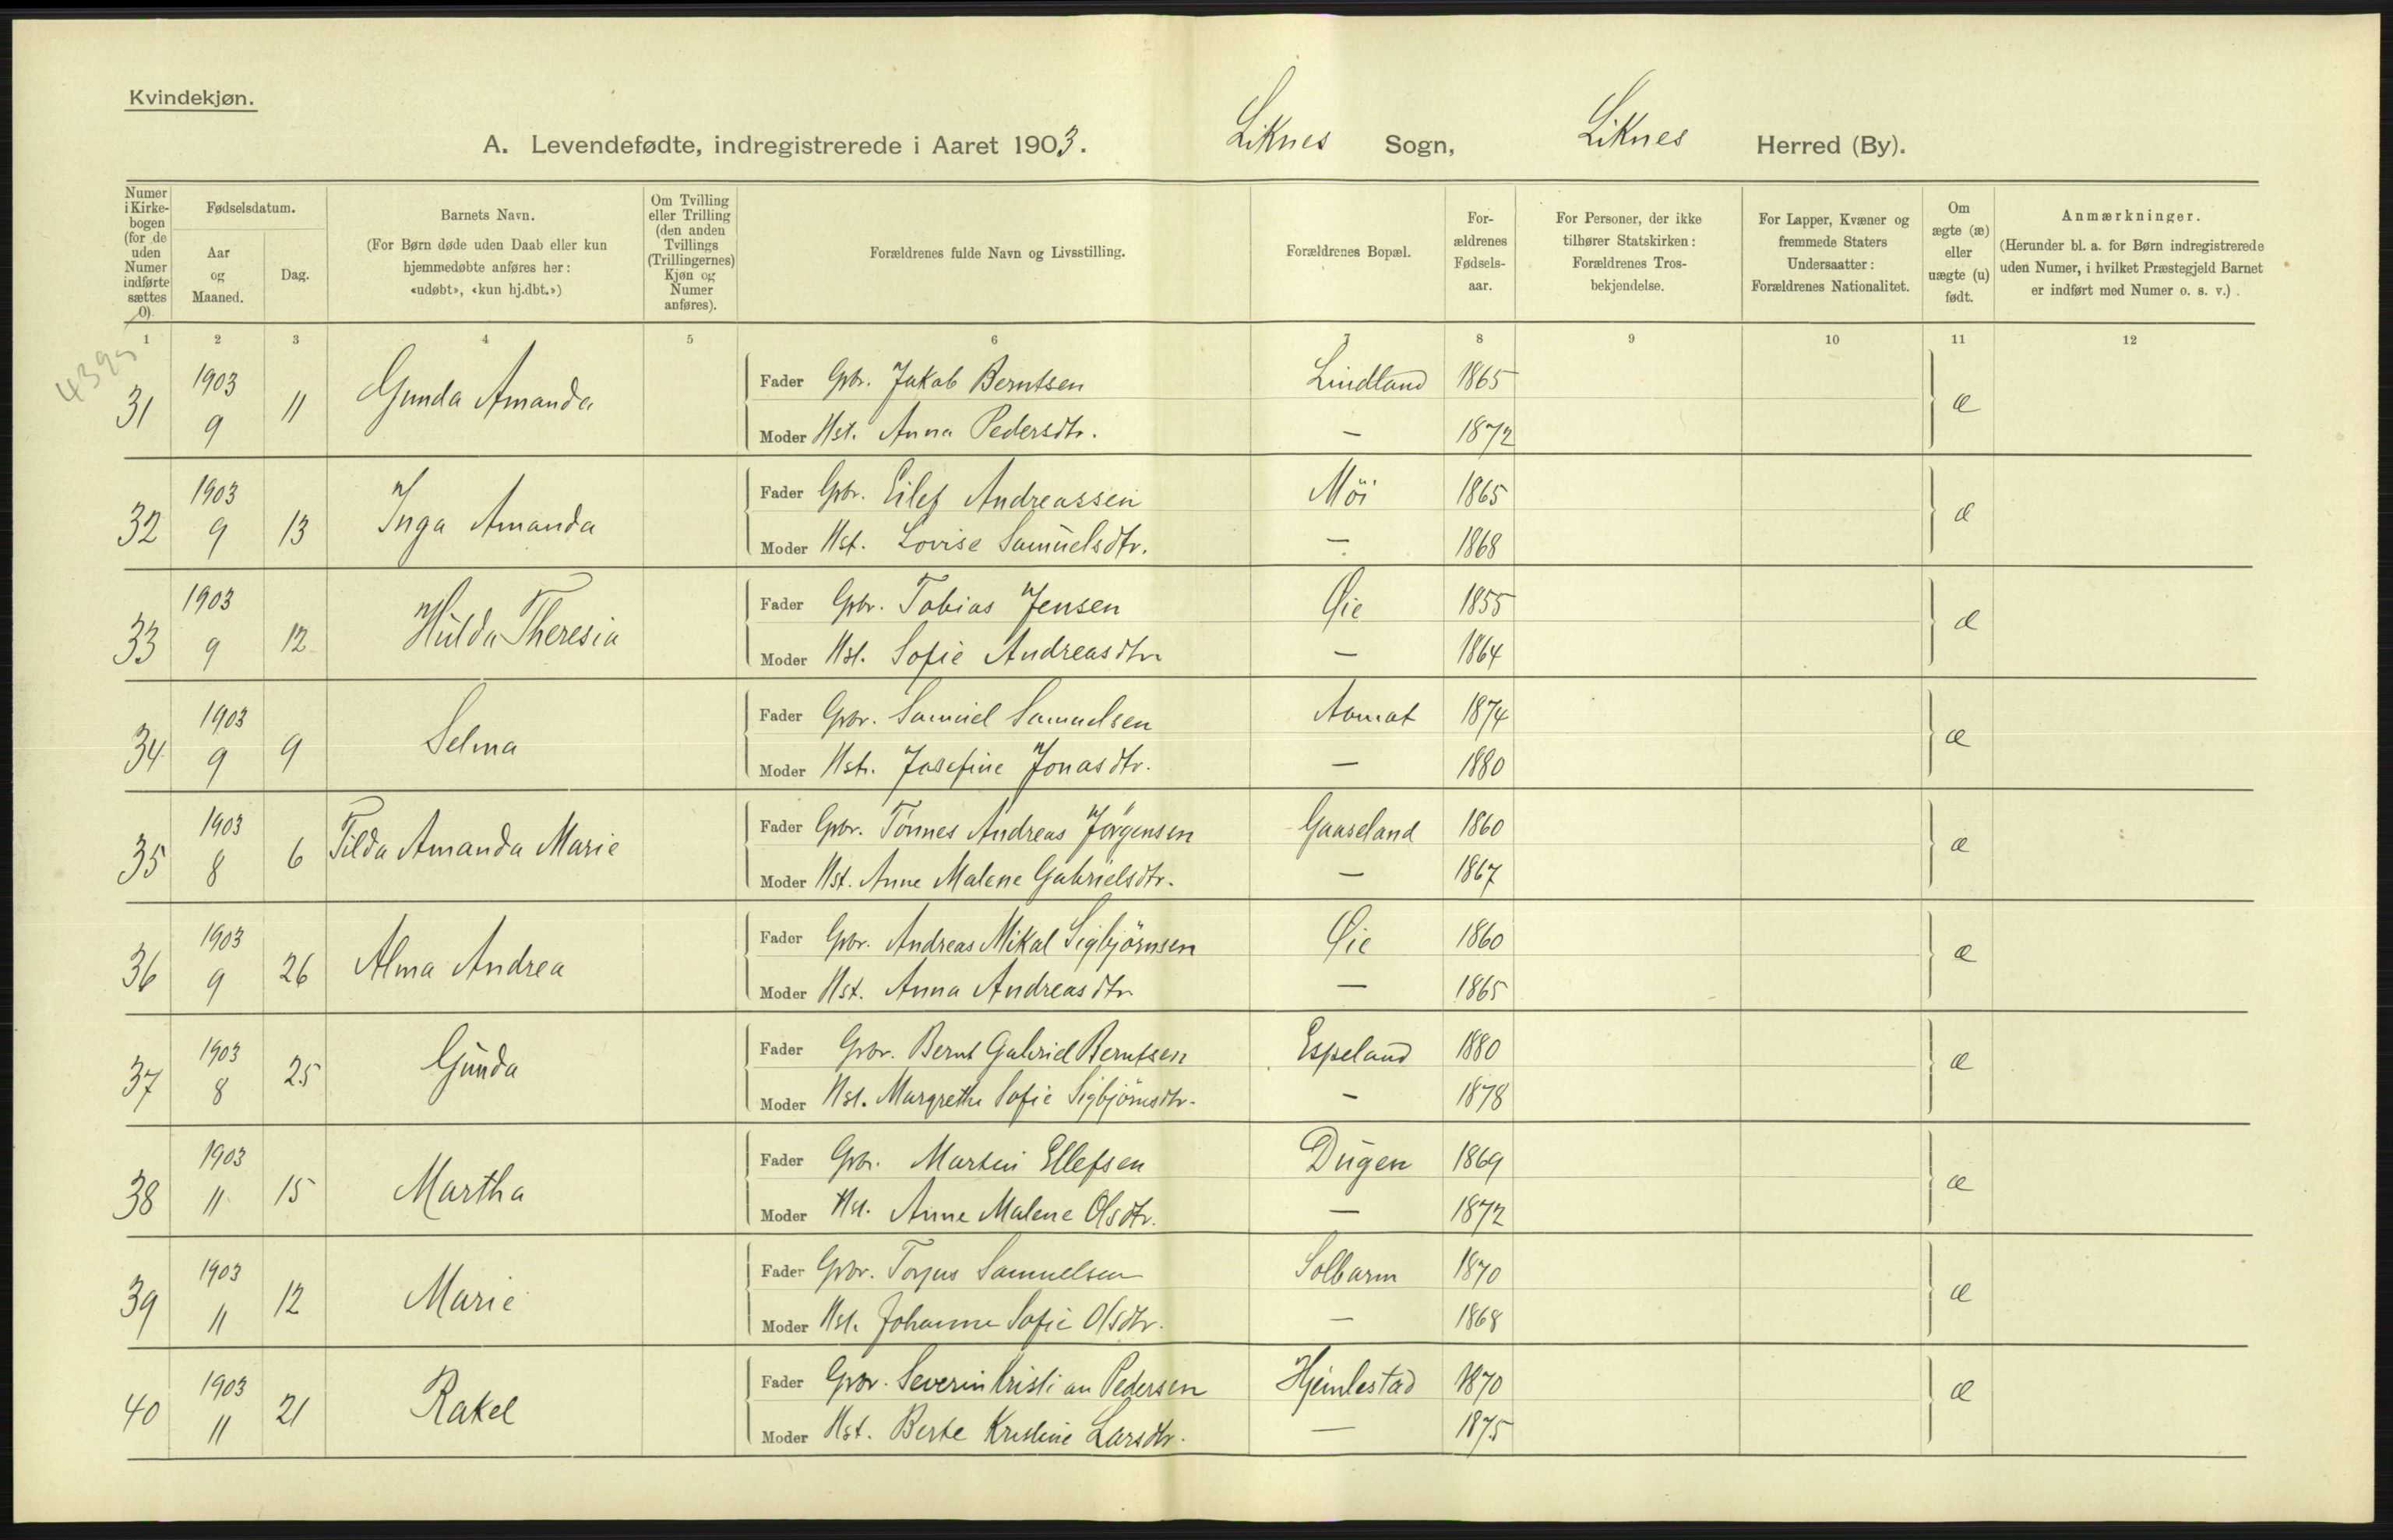 Kvindekjøn.
A. Levendefødte, indregistrerede i Aaret 1903. Liknes Sogn, Liknes Herred (By).
Numer i Kirkebogen (for de uden Numer indførte sættes 0).
Fødselsdatum.
Aar og Maaned.
Dag.
Barnets Navn.
(For Børn døde uden Daab eller kun hjemmedøbte anføres her: «udøbt», «kun hj.dbt.»)
Om Tvilling eller Trilling (den anden Tvillings (Trillingernes) Kjøn og Numer anføres).
Forældrenes fulde Navn og Livsstilling.
Forældrenes Bopæl.
Forældrenes Fødselsaar.
For Personer, der ikke tilhører Statskirken: Forældrenes Trosbekjendelse.
For Lapper, Kvæner og fremmede Staters Undersaatter: Forældrenes Nationalitet.
Om ægte (æ) eller uægte (u) født.
Anmærkninger.
(Herunder bl. a. for Børn indregistrerede uden Numer, i hvilket Præstegjeld Barnet er indført med Numer o. s. v.)
1 2 3 4 5 6 7 8 9 10 11 12
31 1903 9 11 Gunda Amanda Fader Gbr. Jakob Berntsen Lindland 1865 æ
Moder Hst. Anna Pedersdtr. — 1872
32 1903 9 13 Inga Amanda Fader Gbr. Eilef Andreassen Möi 1865 æ
Moder Hst. Lovise Samuelsdtr. — 1868
33 1903 9 12 Hulda Theresia Fader Gbr. Tobias Jensen Øie 1855 æ
Moder Hst. Sofie Andreasdtr. — 1864
34 1903 9 9 Selma Fader Gbr. Samuel Samuelsen Aamot 1874 æ
Moder Hst. Josefine Jonasdtr. — 1880
35 1903 8 6 Tilda Amanda Marie Fader Gbr. Tönnes Andreas Jörgensen Gaaseland 1860 æ
Moder Hst. Anne Malene Gabrielsdtr. — 1867
36 1903 9 26 Alma Andrea Fader Gbr. Andreas Mikal Sigbjörnsen Øie 1860 æ
Moder Hst. Anna Andreasdtr — 1865
37 1903 8 25 Gunda Fader Gbr. Bernt Gabriel Berntsen Espeland 1880 æ
Moder Hst. Margrethe Sofie Sigbjörnsdtr. — 1878
38 1903 11 15 Martha Fader Gbr. Martin Ellefsen Dugen 1869 æ
Moder Hst. Anne Malene Olsdtr. — 1872
39 1903 11 12 Marie Fader Gbr. Torjus Samuelsen Solbarm 1870 æ
Moder Hst. Johanne Sofie Olsdtr. — 1868
40 1903 11 21 Rakel Fader Gbr. Severin Kristian Pedersen Hjemlestad 1870 æ
Moder Hst. Berte Kristine Larsdtr. — 1875